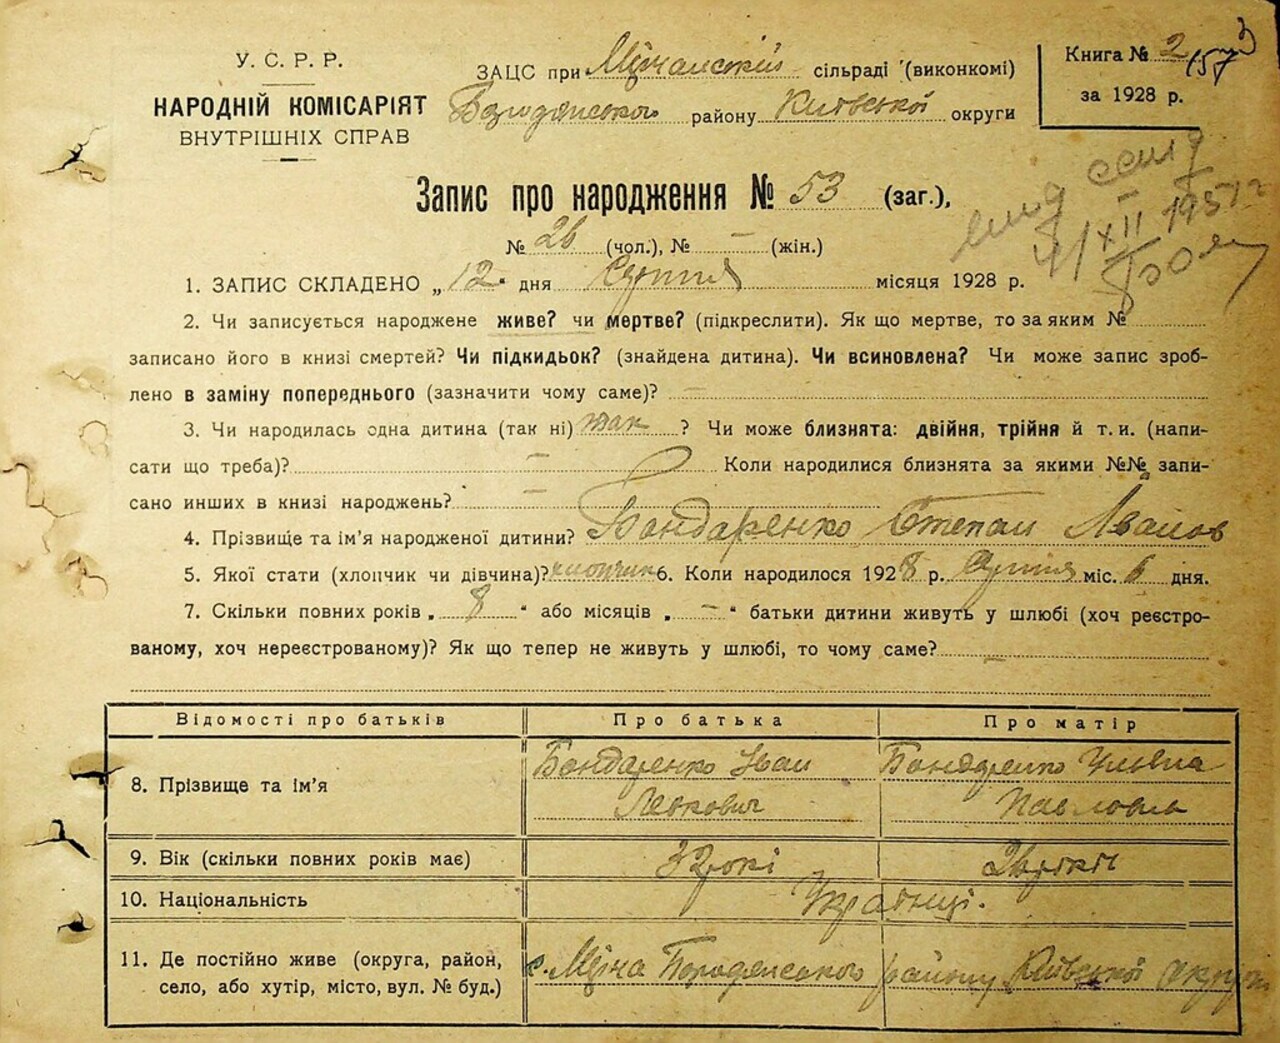 У. С. Р. Р.
НАРОДНІЙ КОМІСАРІЯТ
ВНУТРІШНІХ СПРАВ
ЗАЦС при Мічанській сільраді (виконкомі)
Бородянського району Київської округи
Книга № 2
за 1928 р.
157
Запис про народження № 53 (заг.),
№ 26 (чол.), № — (жін.)
1. ЗАПИС СКЛАДЕНО „12" дня Серпня місяця 1928 р.
2. Чи записується народжене живе? чи мертве? (підкреслити). Як що мертве, то за яким №
записано його в книзі смертей? Чи підкидьок? (знайдена дитина). Чи всиновлена? Чи може запис зроб-
лено в заміну попереднього (зазначити чому саме)? —
3. Чи народилась одна дитина (так ні) так ? Чи може близнята: двійня, трійня й т. и. (напи-
сати що треба)? — Коли народилися близнята за якими №№ запи-
сано инших в книзі народжень? —
4. Прізвище та ім'я народженої дитини? Бондаренко Степан Іванов
5. Якої стати (хлопчик чи дівчина)? хлопчик 6. Коли народилося 1928 р. Серпня міс. 6 дня.
7. Скільки повних років „ 8 " або місяців „ — " батьки дитини живуть у шлюбі (хоч реєстро-
ваному, хоч нереєстрованому)? Як що тепер не живуть у шлюбі, то чому саме? —
Відомості про батьків Про батька Про матір
8. Прізвище та ім'я Бондаренко Іван Левкович Бондаренко Уляна Павловна
9. Вік (скільки повних років має) 32 рокі 26 рокі
10. Національність Українці.
11. Де постійно живе (округа, район,
село, або хутір, місто, вул. № буд.) с. Міча Бородянського району Київської округи